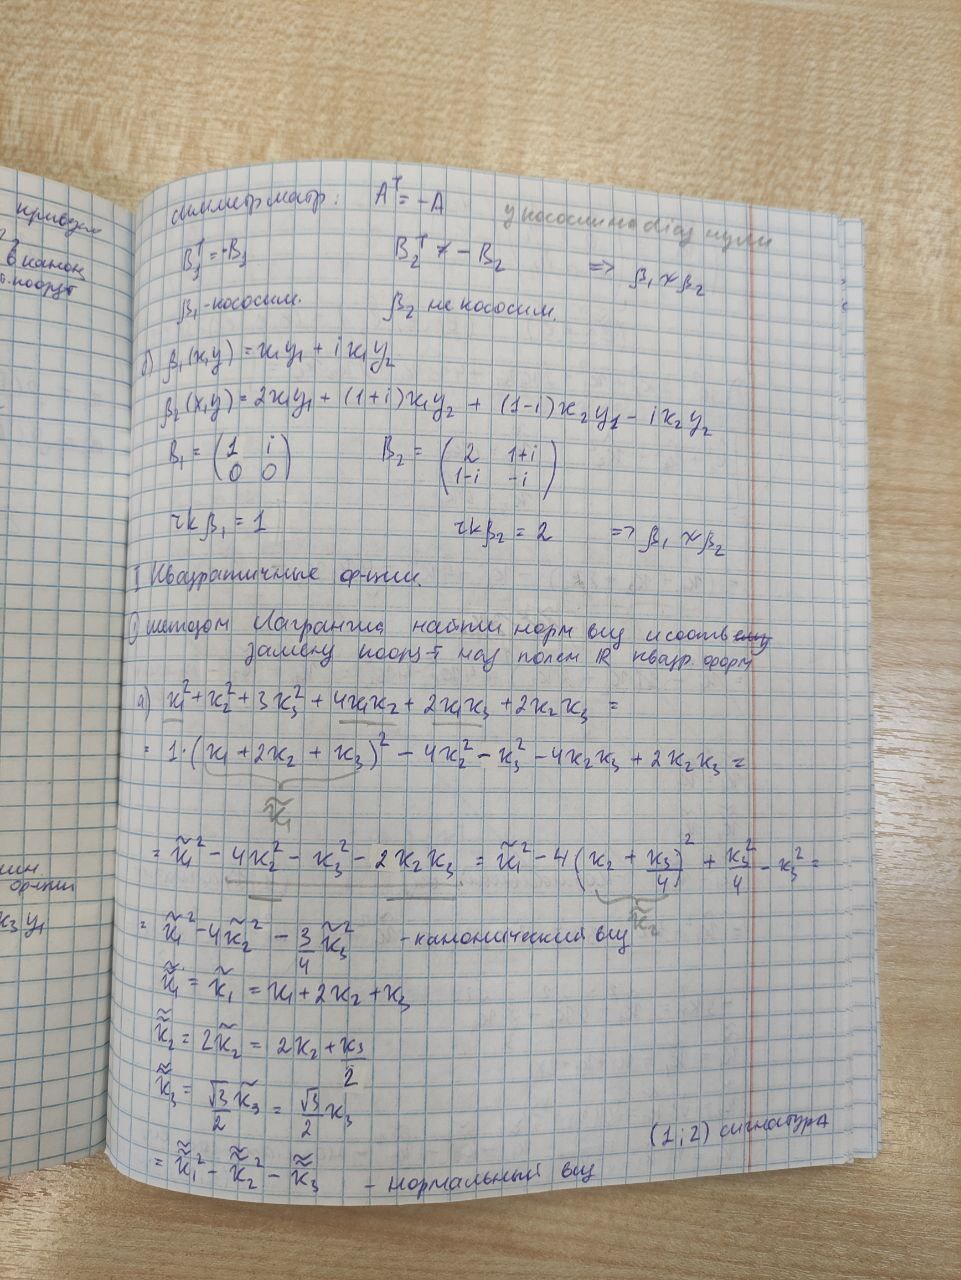 привед
в канон
симметр матр: Aᵀ = -A
у кососим на diag нули
B₁ᵀ = -B₁ B₂ᵀ ≠ -B₂ => β₁ ≁ β₂
β₁ - кососим. β₂ не кососим.
б) β₁(x,y) = x₁y₁ + i x₁y₂
β₂(x,y) = 2x₁y₁ + (1+i)x₁y₂ + (1-i)x₂y₁ - i x₂y₂
B₁ = (1 i; 0 0) B₂ = (2 1+i; 1-i -i)
rk β₁ = 1 rk β₂ = 2 => β₁ ≁ β₂
I Квадратичные ф-ции.
① методом Лагранжа найти норм вид и соотв
замену коорд-т над полем ℝ квадр. форм
а) x₁² + x₂² + 3x₃² + 4x₁x₂ + 2x₁x₃ + 2x₂x₃ =
= 1·(x₁ + 2x₂ + x₃)² - 4x₂² - x₃² - 4x₂x₃ + 2x₂x₃ =
x̃₁
= x̃₁² - 4x₂² - x₃² - 2x₂x₃ = x̃₁² - 4(x₂ + x₃/4)² + x₃²/4 - x₃² =
x̃₂
= x̃₁² - 4x̃₂² - 3/4 x̃₃² - канонический вид
x̃̃₁ = x̃₁ = x₁ + 2x₂ + x₃
x̃̃₂ = 2x̃₂ = 2x₂ + x₃/2
x̃̃₃ = √3/2 x̃₃ = √3/2 x₃
(1; 2) сигнатура
= x̃̃₁² - x̃̃₂² - x̃̃₃ - нормальный вид
ф-ции
x₃y₁